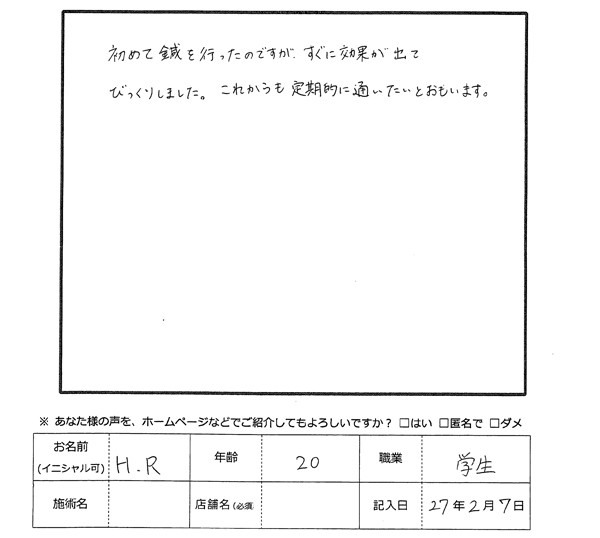 初めて鍼を行ったのですが、すぐに効果が出て
びっくりしました。これからも定期的に通いたいとおもいます。
※ あなた様の声を、ホームページなどでご紹介してもよろしいですか？ □はい □匿名で □ダメ
お名前 (イニシャル可) H.R 年齢 20 職業 学生
施術名 店舗名(必須) 記入日 27年2月7日